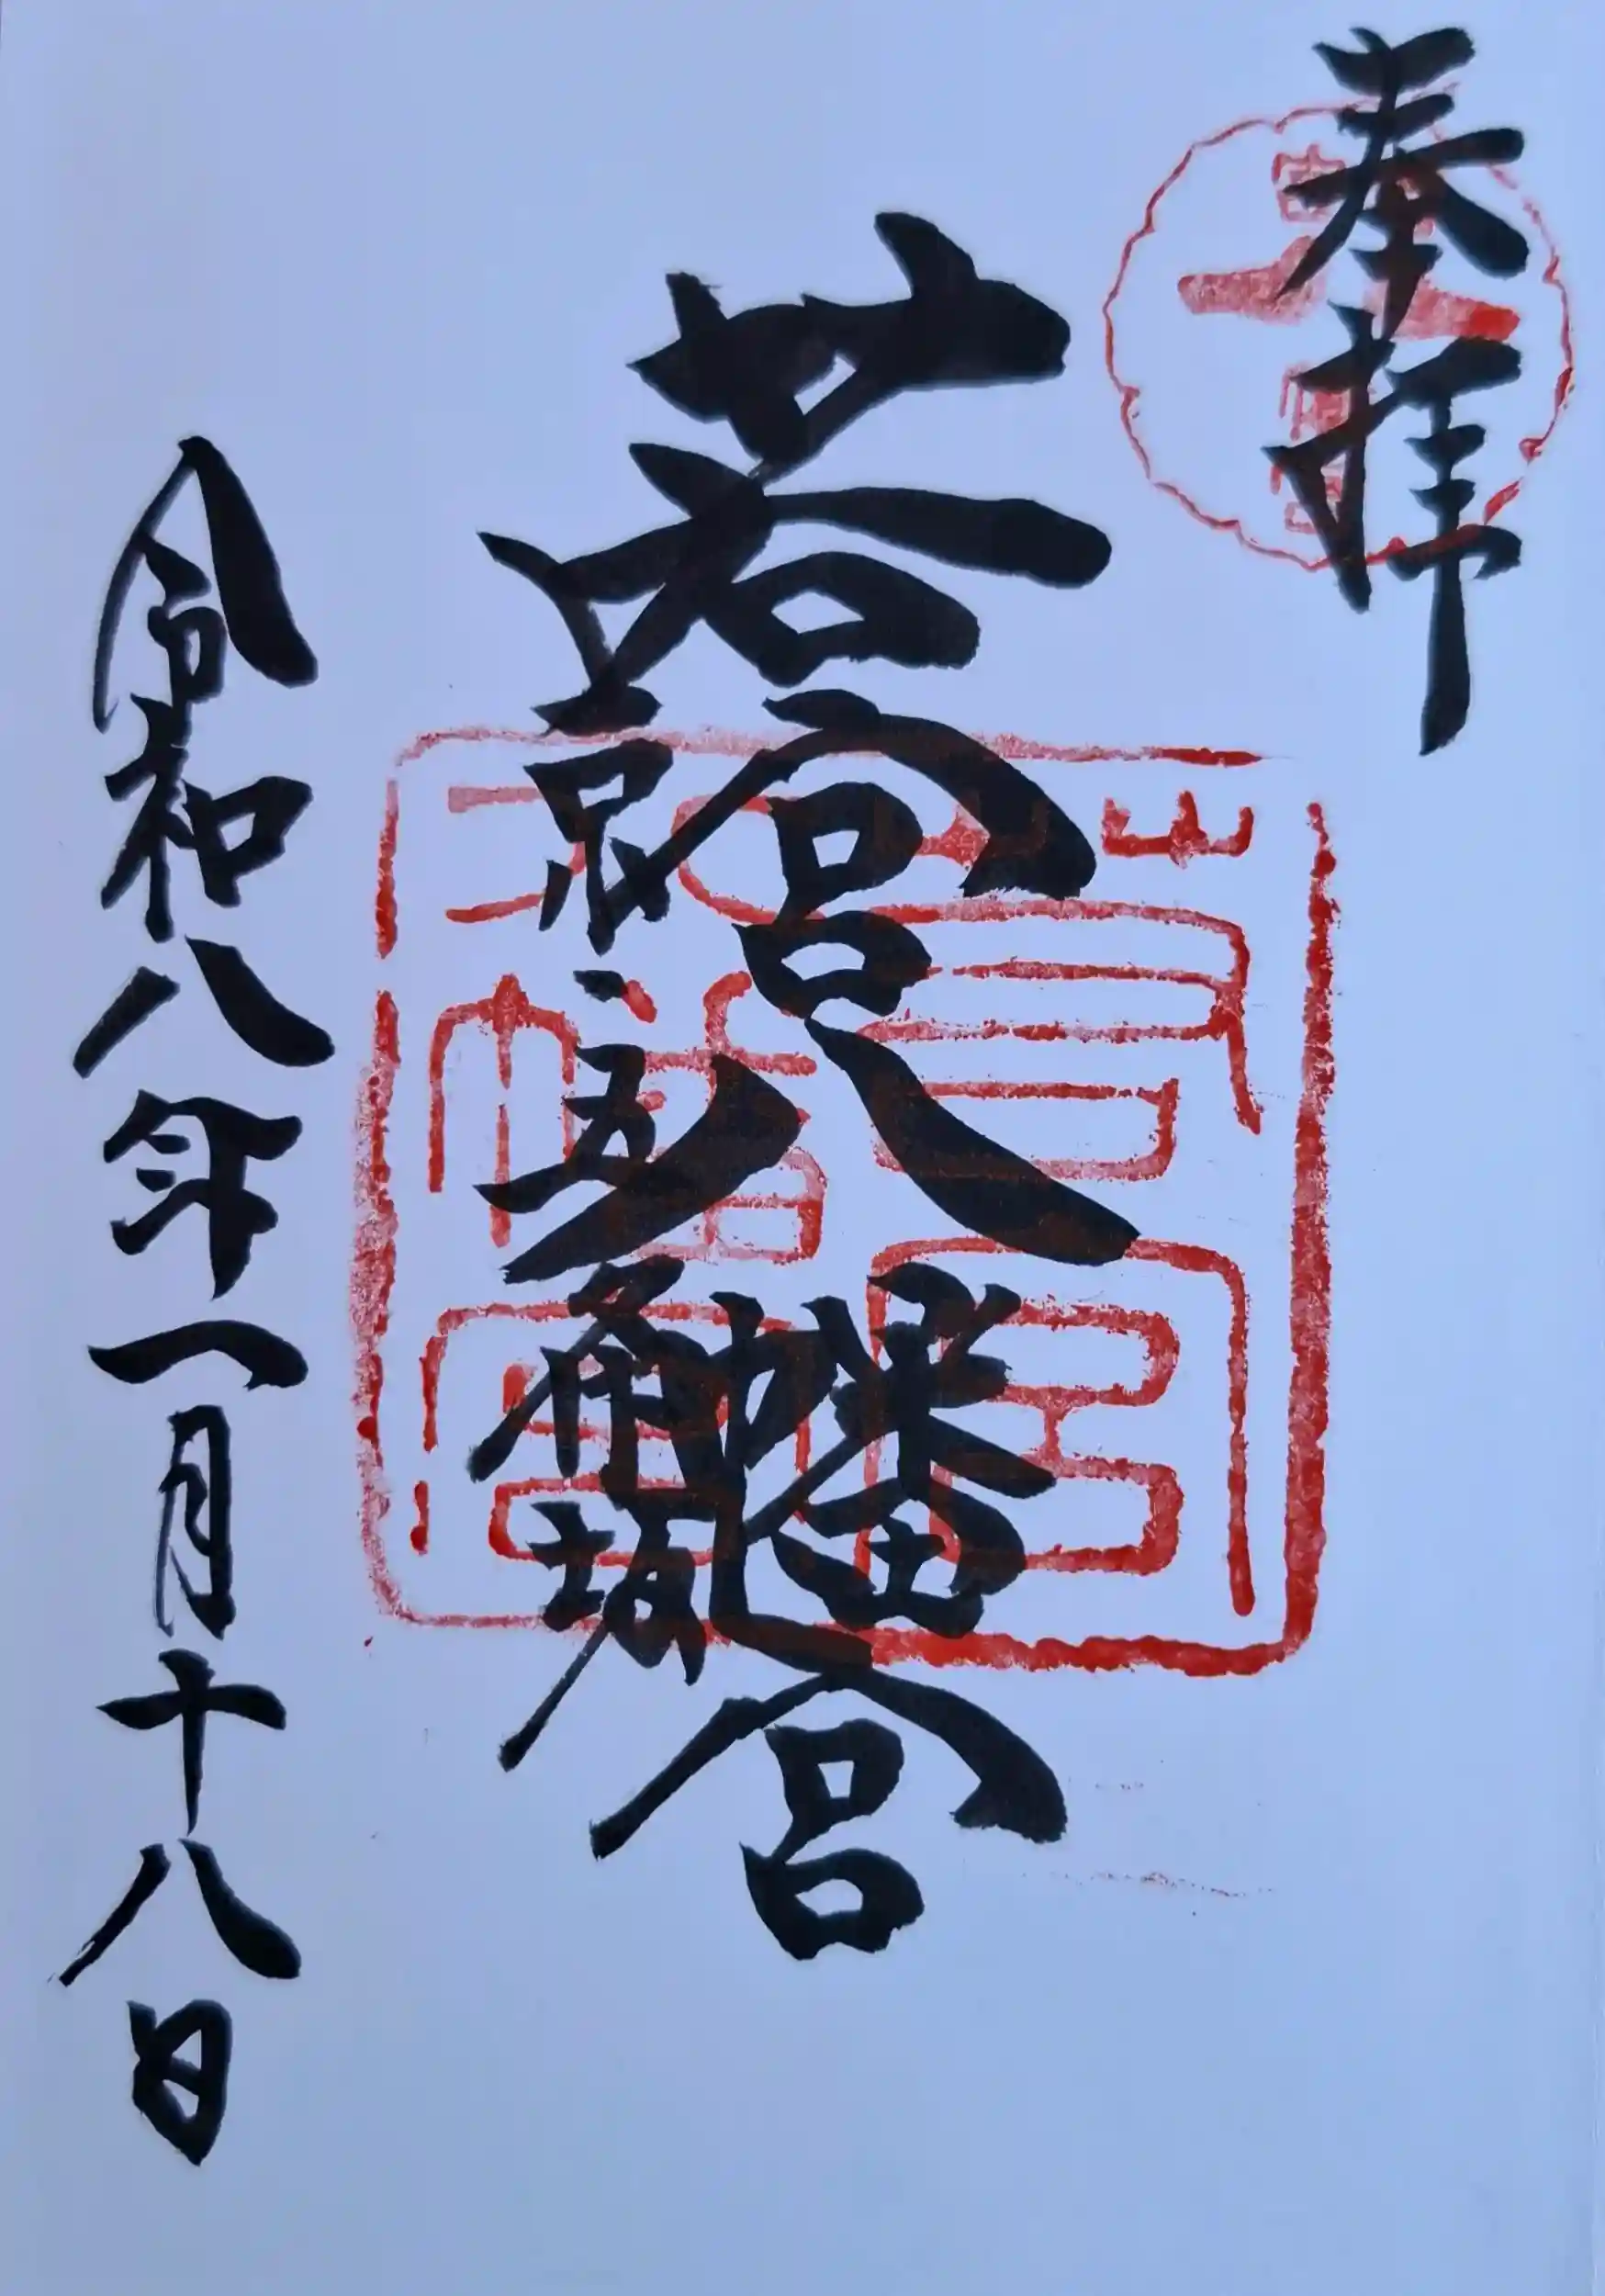 奉拝
若宮八幡宮
京・五条坂
令和八年一月十八日